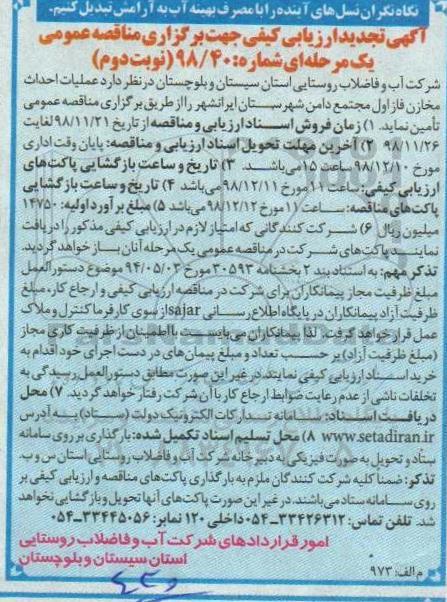 نگاه نگران نسل های آینده را با مصرف بهینه آب به آرامش تبدیل کنیم.
آگهی تجدید ارزیابی کیفی جهت برگزاری مناقصه عمومی
یک مرحله ای شماره: ۹۸/۴۰ (نوبت دوم)
شرکت آب و فاضلاب روستایی استان سیستان و بلوچستان در نظر دارد عملیات احداث
مخازن فاز اول مجتمع دامن شهرستان ایرانشهر را از طریق برگزاری مناقصه عمومی
تأمین نماید. ۱) زمان فروش اسناد ارزیابی و مناقصه از تاریخ ۹۸/۱۱/۲۱ لغایت
۹۸/۱۱/۲۶ ۲) آخرین مهلت تحویل اسناد ارزیابی و مناقصه: پایان وقت اداری
مورخ ۹۸/۱۲/۱۰ ساعت ۱۵ می باشد. ۳) تاریخ و ساعت بازگشایی پاکت های
ارزیابی کیفی: ساعت ۱۱ مورخ ۹۸/۱۲/۱۱ می باشد ۴) تاریخ و ساعت بازگشایی
پاکت های مناقصه: ساعت ۱۱ مورخ ۹۸/۱۲/۱۲ می باشد ۵) مبلغ برآورد اولیه: ۱۴۷۵۰
میلیون ریال ۶) شرکت کنندگانی که امتیاز لازم در ارزیابی کیفی مذکور را دریافت
نمایند پاکت های شرکت در مناقصه عمومی یک مرحله آنان باز خواهد گردید.
تذکر مهم: به استناد بند ۲ بخشنامه ۳۰۵۹۳ مورخ ۹۴/۰۵/۰۳ موضوع دستورالعمل
مبلغ ظرفیت مجاز پیمانکاران برای شرکت در مناقصه ارزیابی کیفی و ارجاع کار، مبلغ
ظرفیت آزاد پیمانکاران در پایگاه اطلاع رسانی sajar از سوی کارفرما کنترل و ملاک
عمل قرار خواهد گرفت. لذا پیمانکاران می بایست با اطمینان از ظرفیت کاری مجاز
(مبلغ ظرفیت آزاد) بر حسب تعداد و مبلغ پیمان های در دست اجرای خود اقدام به
خرید اسناد ارزیابی کیفی نمایند در غیر این صورت مطابق دستورالعمل رسیدگی به
تخلفات ناشی از عدم رعایت ضوابط ارجاع کار با آن شرکت رفتار خواهد گردید. ۷) محل
دریافت اسناد: سامانه تدارکات الکترونیک دولت (ستاد) به آدرس
www.setadiran.ir ۸) محل تسلیم اسناد تکمیل شده: بارگذاری بر روی سامانه
ستاد و تحویل به صورت فیزیکی به دبیرخانه شرکت آب و فاضلاب روستایی استان س و ب.
تذکر: ضمنا کلیه شرکت کنندگان ملزم به بارگذاری پاکت های مناقصه و ارزیابی کیفی بر
روی سامانه ستاد می باشند. در غیر این صورت پاکت های آنها تحویل و بازگشایی نخواهد
شد. تلفن تماس: ۳۳۴۲۶۳۱۲-۰۵۴ داخلی ۱۲۰ نمابر: ۳۳۴۴۵۰۵۶-۰۵۴
امور قراردادهای شرکت آب و فاضلاب روستایی
استان سیستان و بلوچستان
م الف: ۹۷۳